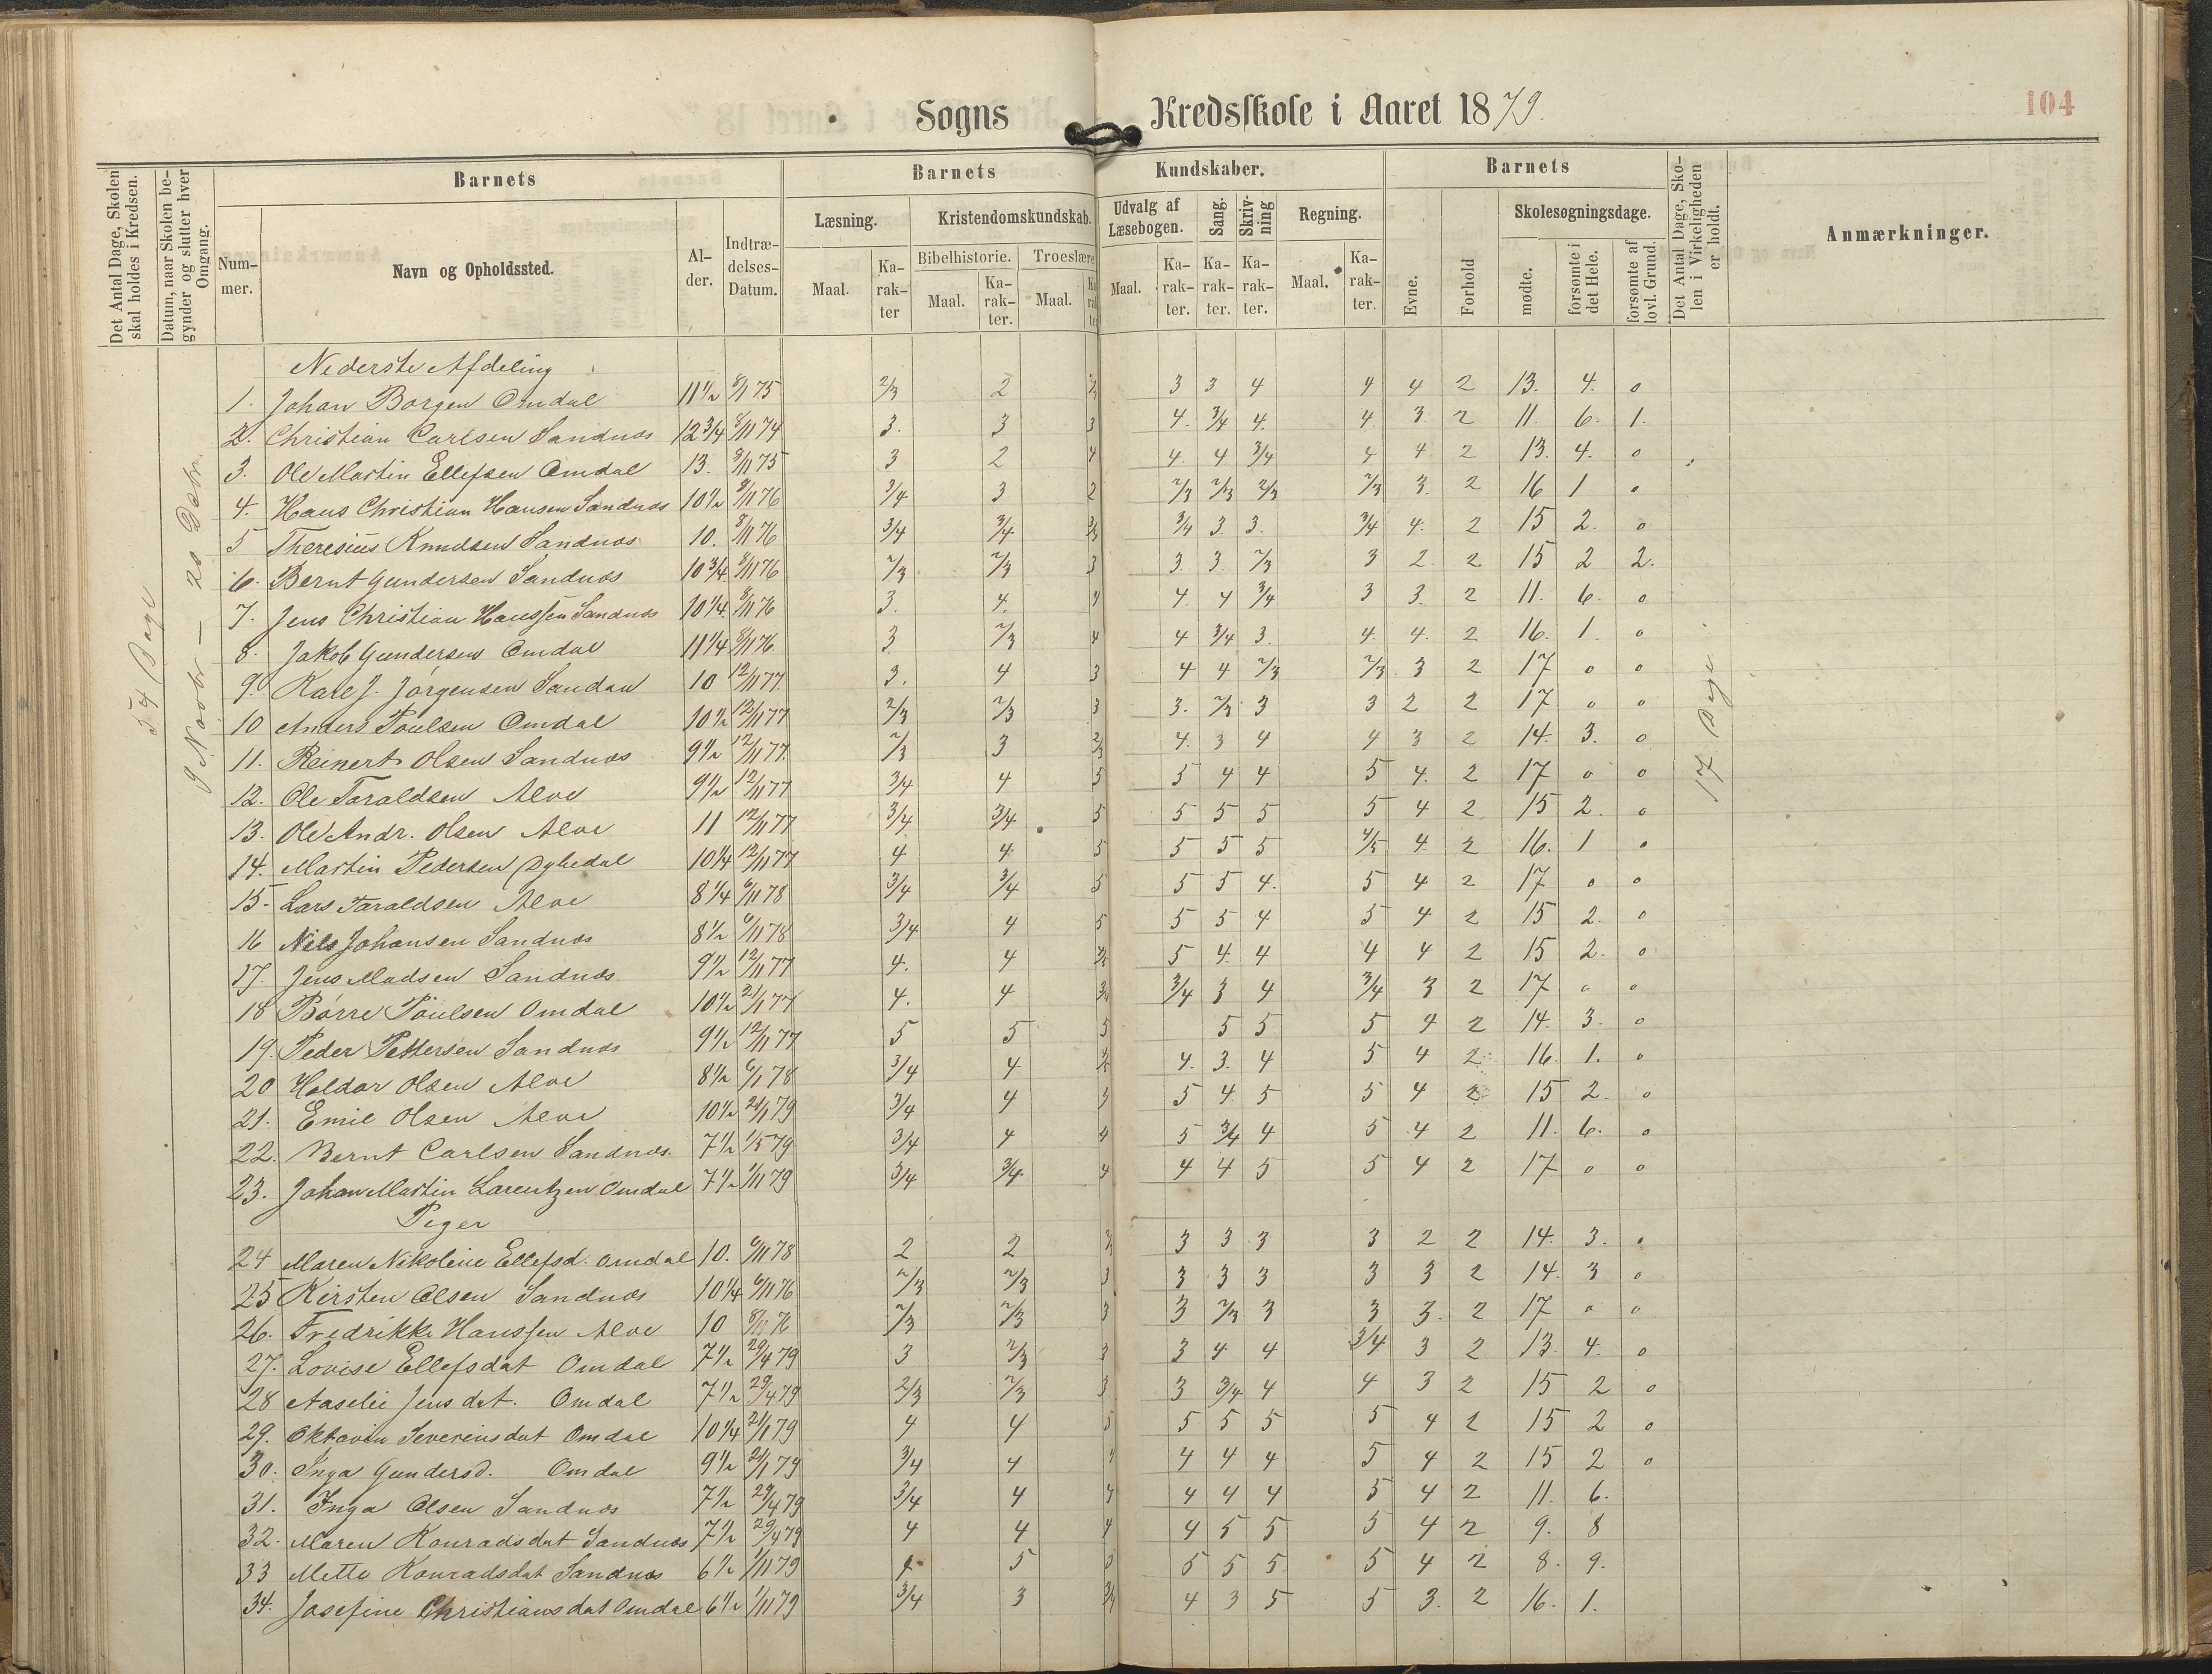 Sogns Kredsskole i Aaret 1879.
104
Det Antal Dage, Skolen skal holdes i Kredsen.
Datum, naar Skolen begynder og slutter hver Omgang.
Barnets
Nummer.
Navn og Opholdssted.
Alder.
Indtrædelses-Datum.
Barnets Kundskaber.
Læsning.
Maal.
Karakter
Kristendomskundskab.
Bibelhistorie.
Maal.
Karakter.
Troeslære
Maal.
Udvalg af Læsebogen.
Maal.
Karakter.
Sang.
Karakter.
Skrivning
Karakter.
Regning.
Maal.
Karakter.
Barnets
Evne.
Forhold
Skolesøgningsdage.
mødte.
forsømte i det Hele.
forsømte af lovl. Grund.
Det Antal Dage, Skolen i Virkeligheden er holdt.
Anmærkninger.
54 Dage
17 Dage
Nederste Afdeling
1. Johan Borgen Omdal 11 1/2 8/11 75 2/3 2 3 3 4 4 4 2 13. 4. 0
2. Christian Carlsen Sandnæs 12 3/4 8/11 74 3. 3 3 4. 3/4 4. 4. 3 2 11. 6. 1.
3. Ole Martin Ellefsen Omdal 13. 8/11 75 3 2 4 4. 4 3/4 4 4 2 13. 4. 0
4. Hans Christian Hansen Sandnæs 10 1/2 8/11 76 3/4 3 2 2/3 2/3 2/3 2/3 3. 2 16 1 0
5 Theresius Knudsen Sandnæs 10. 8/11 76 3/4 3/4 3/4 3. 3. 3/4 4. 2 15 2. 0
6. Bernt Gundersen Sandnæs 10 3/4 8/11 76 2/3 2/3 3 3. 3. 2/3 3 2 2 15 2 2.
7. Jens Christian Hanssen Sandnæs 10 1/4 8/11 76 3. 4. 4 4. 4 3/4 3 3. 2 11. 6. 0
8. Jakob Gundersen Omdal 11 1/4 8/11 76 3 2/3 4 4 3/4 3. 4. 4. 2 16. 1. 0
9. Karl J. Jørgensen Sandan 10 12/11 77. 3. 4 3 4 4 2/3 2/3 3 2 17 0 0
10 Anders Poulsen Omdal 10 1/2 12/11 77 2/3 2/3 3 3. 2/3 3 3 2 2 17 0 0
11. Reinert Olsen Sandnæs 9 1/2 12/11 77. 2/3 3 2/3 4. 3 4 4 3 2 14. 3. 0
12. Ole Taraldsen Alve 9 1/2 12/11 77 3/4 4 5 5 4 4 5 4. 2 17 0 0
13. Ole Andr. Olsen Alve 11 12/11 77 3/4 3/4 5 5 5 5 5 4 2 15 2. 0
14. Martin Pedersen Dybedal 10 1/4 12/11 77 4 4 5 5 5 5 4/5 4. 2 16. 1 0
15. Lars Taraldsen Alve 8 1/4 6/11 78 3/4 3/4 5 5 5 4. 5 4 2 17 0 0
16 Nils Johansen Sandnæs 8 1/2 6/11 78 3/4 4 5 5 5 4 5 4 2 15 2. 0
17. Jens Madsen Sandnæs 9 1/2 12/11 77 4. 4 5 4. 4 4 4 2 15 2. 0
18 Børre Poulsen Omdal 10 1/2 21/1 77 4. 4 3/4 3/4 3 4 3/4 3 2 17 0 0
19. Peder Pettersen Sandnæs 9 1/2 12/11 77 5 5 5 5 5 5 4 2 14. 3. 0
20 Haldor Olsen Alve 8 1/2 6/1 78 3/4 4 4. 3. 4 5 4 2 16. 1. 0
21. Emil Olsen Alve 10 1/2 21/1 79 3/4 4 5 4. 5 5 4 2 15 2. 0
22. Bernt Carlsen Sandnæs. 7 1/2 1/5 79 3/4 4 4 5 3/4 4 5 4 2 11. 6. 0
23. Johan Martin Larentzen Omdal 7 1/2 1/11 79 3/4 3/4 4 4 4 5 5 4 2 17. 0 0
Piger
24 Maren Nikoline Ellefsd. Omdal 10. 6/11 78 2 2 3 3 3 3 2 2 14. 3. 0
25 Kirsten Olsen Sandnæs 10 1/4 6/11 76 2/3 2/3 3 3 3 3 3 3 2 14. 3 0
26. Fredrikke Hanssen Alve 10 8/11 76 2/3 2/3 3 3 2/3 3 3 3. 2 17 0 0
27. Lovise Ellefsdat Omdal 7 1/2 29/4 79 3 2/3 3 3 4 4 3/4 3 2 13. 4. 0
28 Aaselie Jensdat. Omdal 7 1/2 29/4 79 2/3 2/3 3 3 3/4 4 4 3 2 15 2 0
29. Oktavia Severinsdat Omdal 10 1/4 21/1 79 4 4 5 5 5 5 5 4 2 15 2 0
30. Inga Gundersd. Omdal 9 1/2 21/1 79 3/4 4 4 4 4 5 4 2 15 2 0
31. Inga Olsen Sandnæs 7 1/2 29/4 79 3/4 4 4 4 4 4 5 4 2 11. 6.
32. Maren Konradsdat Sandnæs 7 1/2 29/4 79 4 4 4 4 5 5 5 4 2 9. 8
33 Mette Konradsdat Sandnæs 6 1/2 1/11 79 4 5 5 5 5 5 5 4 2 8. 9.
34. Josefine Christiansdat Omdal 6 1/2 1/11 79 3/4 3 3/4 4 3 5 5 3. 2 16. 1.